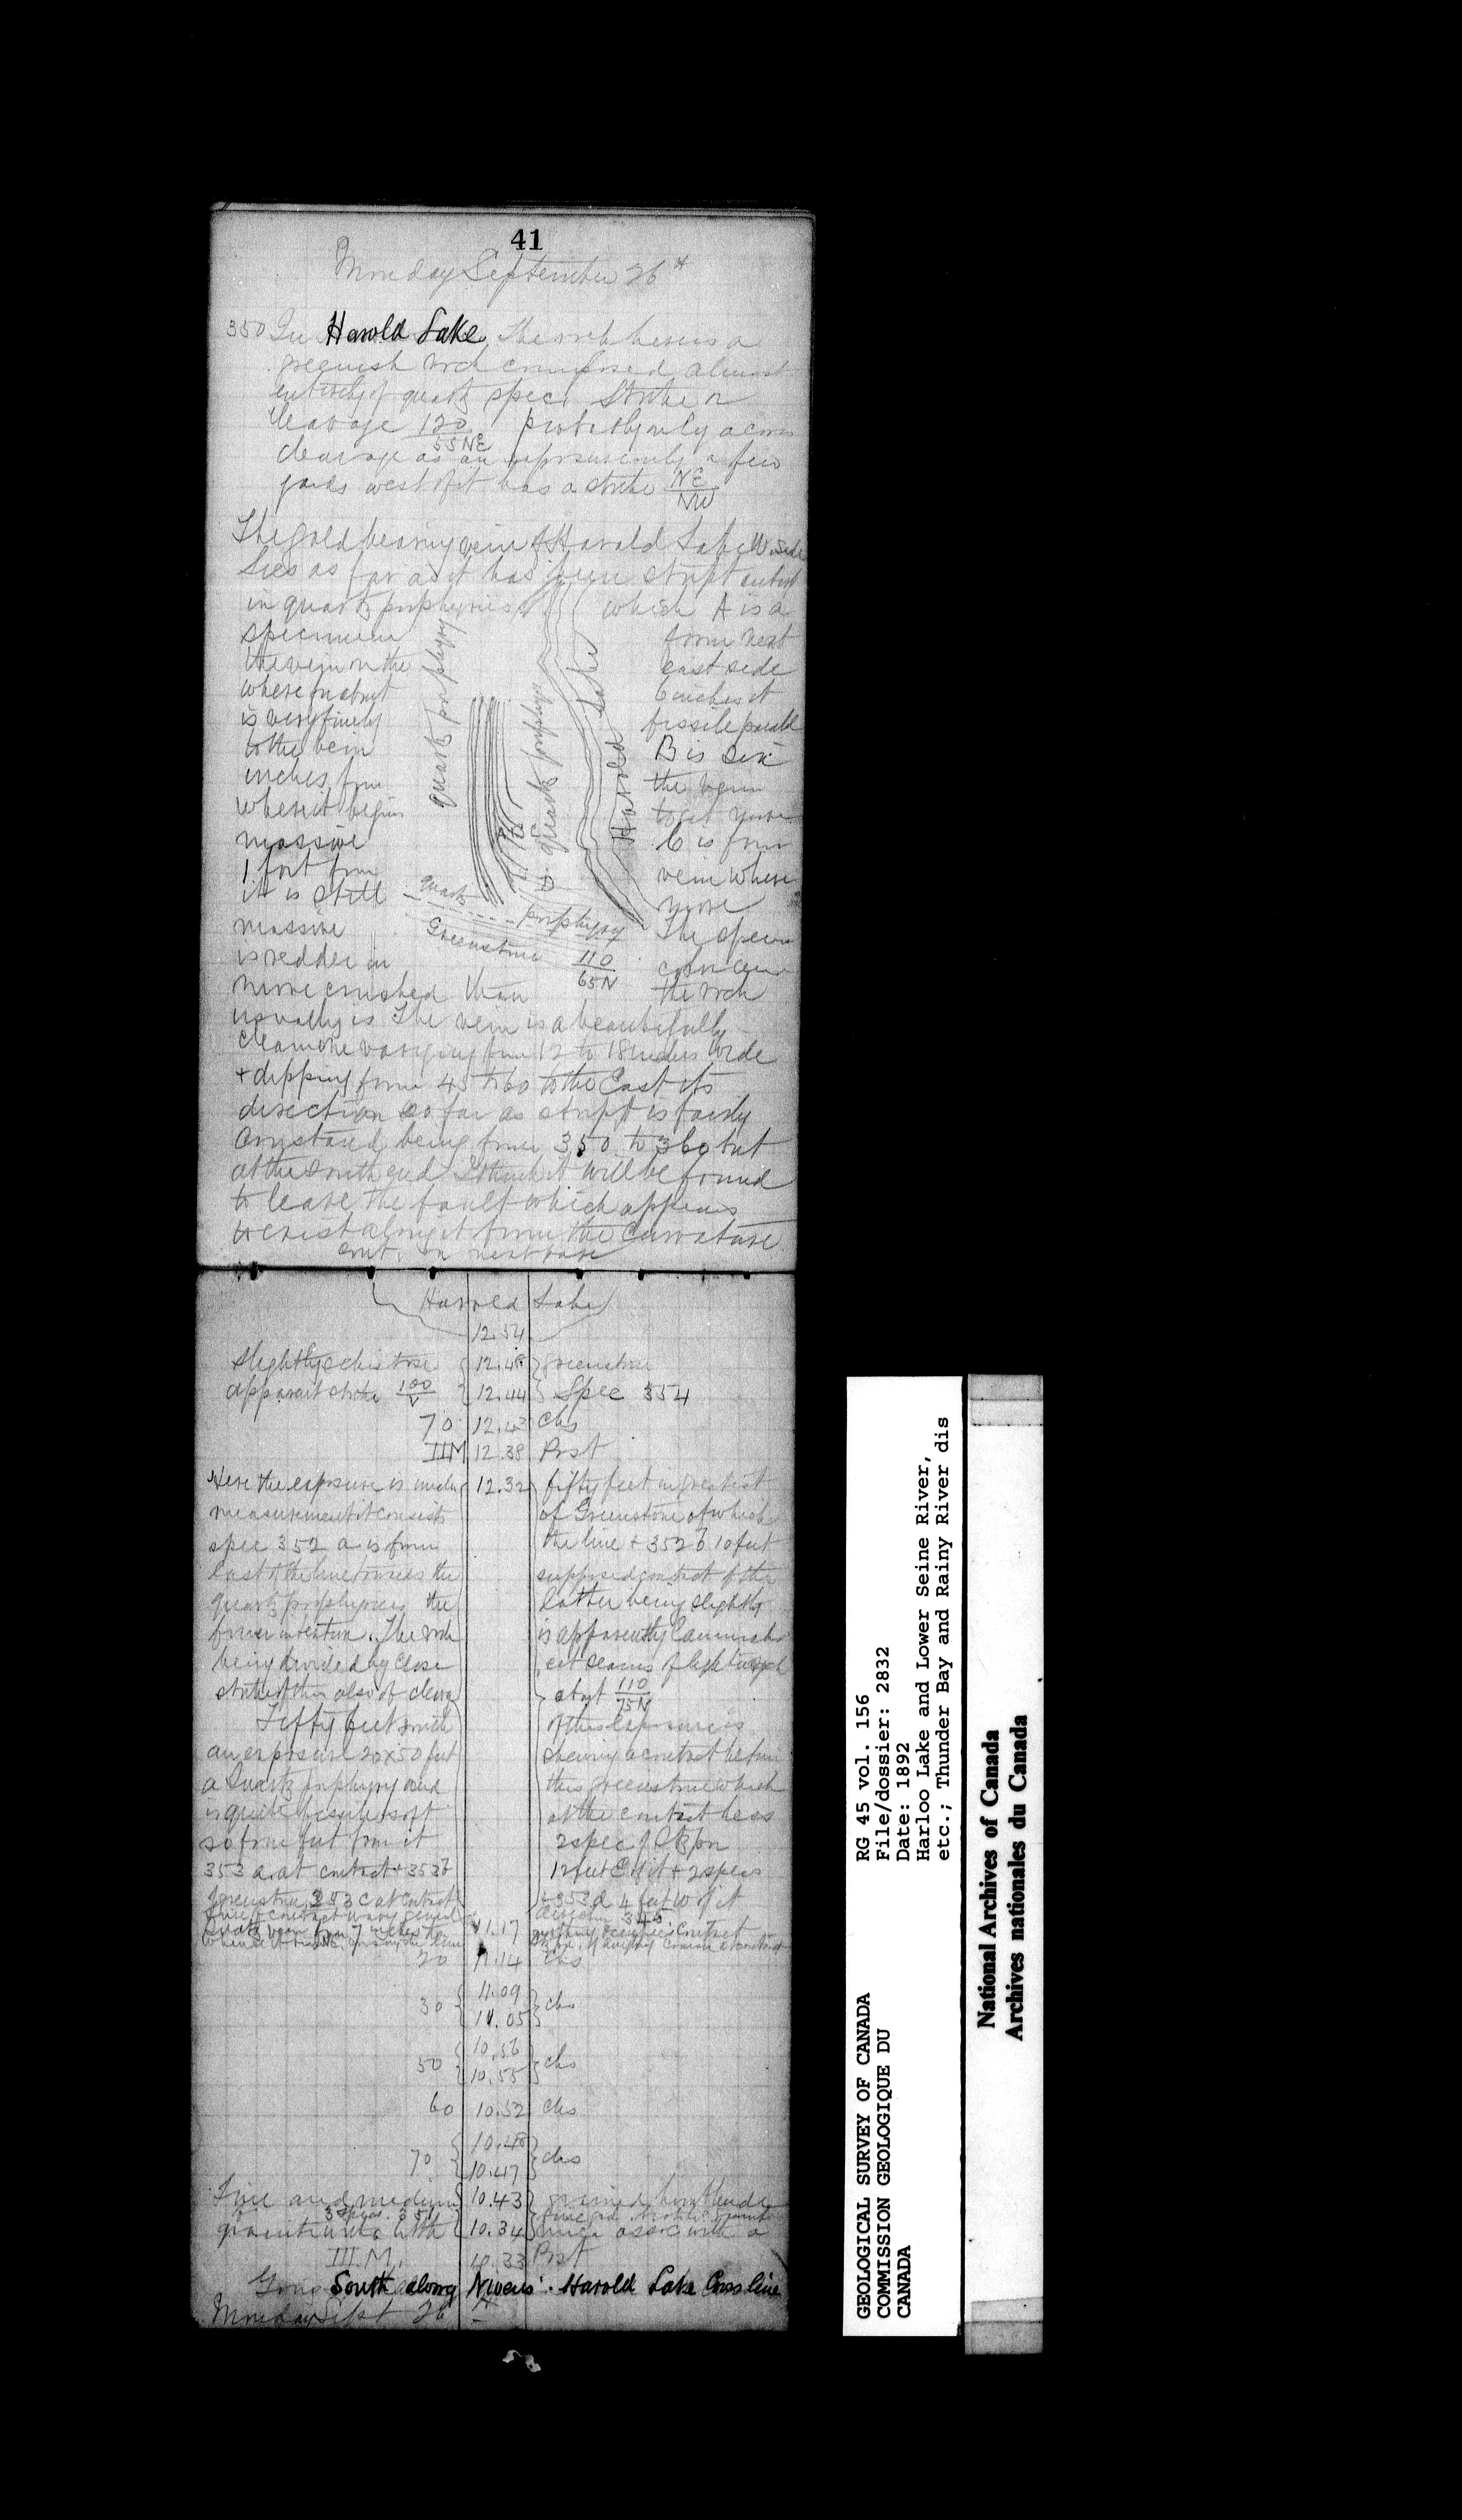 41
Monday September 26th
350 In Harold Lake, The rock here is a
greenish rock composed almost
entirely of quartz spec. Strike or
cleavage 120/55NE probably only a cross
cleavage as an exposure only a few
yards west of it has a strike NE/NW
The gold bearing vein of Harold Lake W. side
lies as far as it has been stript
in quartz porphyries which A is a
specimen from next
the vein on the east side
where for about 6 inches it
is very finely fissile parallel
to the vein B is six
inches from the vein
where it begins to get more
massive C is from
1 foot from vein where
it is still more
massive The specn
is redder in color and
more crushed than the rock
quartz porphyry
quartz porphyry
Harold Lake
quartz porphyry
Greenstone 110/65N
usually is The vein is a beautifully
clean one varying from 12 to 18 inches wide
+ dipping from 45 to 60 to the East its
direction so far as stript is fairly
constant being from 350 to 360 but
at the south end I think it will be found
to leave the fault which appears
to exist along it from the curvature
cont. on next page
Harold Lake
12.54
slightly schistose 12.48 greenstone
apparent strike 100/V 12.44 Spec 354
70 12.43 chs
IIM 12.38 Post
Here the exposure is under 12.32 fifty feet in greatest
measurement it consists of Greenstone of which
spec 352 a is from the line + 352 b 10 feet
East of the line towards the supposed contact of the
quartz porphyries the latter being slightly
finer in texture. The rock is apparently laminated
being divided by close set seams of light
strike of this also of cleavage about 110/75N
Fifty feet south of this exposure is
an exposure 20x50 feet showing a contact between
a Quartz porphyry and this greenstone which
is quite fissile soft at the contact less
so four feet from it 2 spec of Qtz por
353 a at contact + 353 b 12 feet E of it + 2 specs
greenstone 353 c at contact + 353 d 4 feet W of it
direction 345
11.17 contact
20 11.14 chs
30 11.09
11.05 chs
50 10.56
10.55 chs
60 10.52 chs
70 10.48
10.47 chs
Fine and medium 10.43 grained hornblende
3 Spec. 351
granite with little 10.34 mica assoc with a
III.M. 10.33 Post
Going South along Nivens' Harold Lake Cross line
Monday Sept 26th
RG 45 vol. 156
File/dossier: 2832
Date: 1892
Harloo Lake and Lower Seine River,
etc.; Thunder Bay and Rainy River dis
GEOLOGICAL SURVEY OF CANADA
COMMISSION GEOLOGIQUE DU
CANADA
National Archives of Canada
Archives nationales du Canada